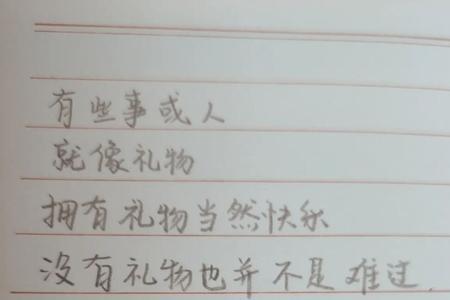 有些事或人
就像礼物
拥有礼物当然快乐
没有礼物也并不是难过.